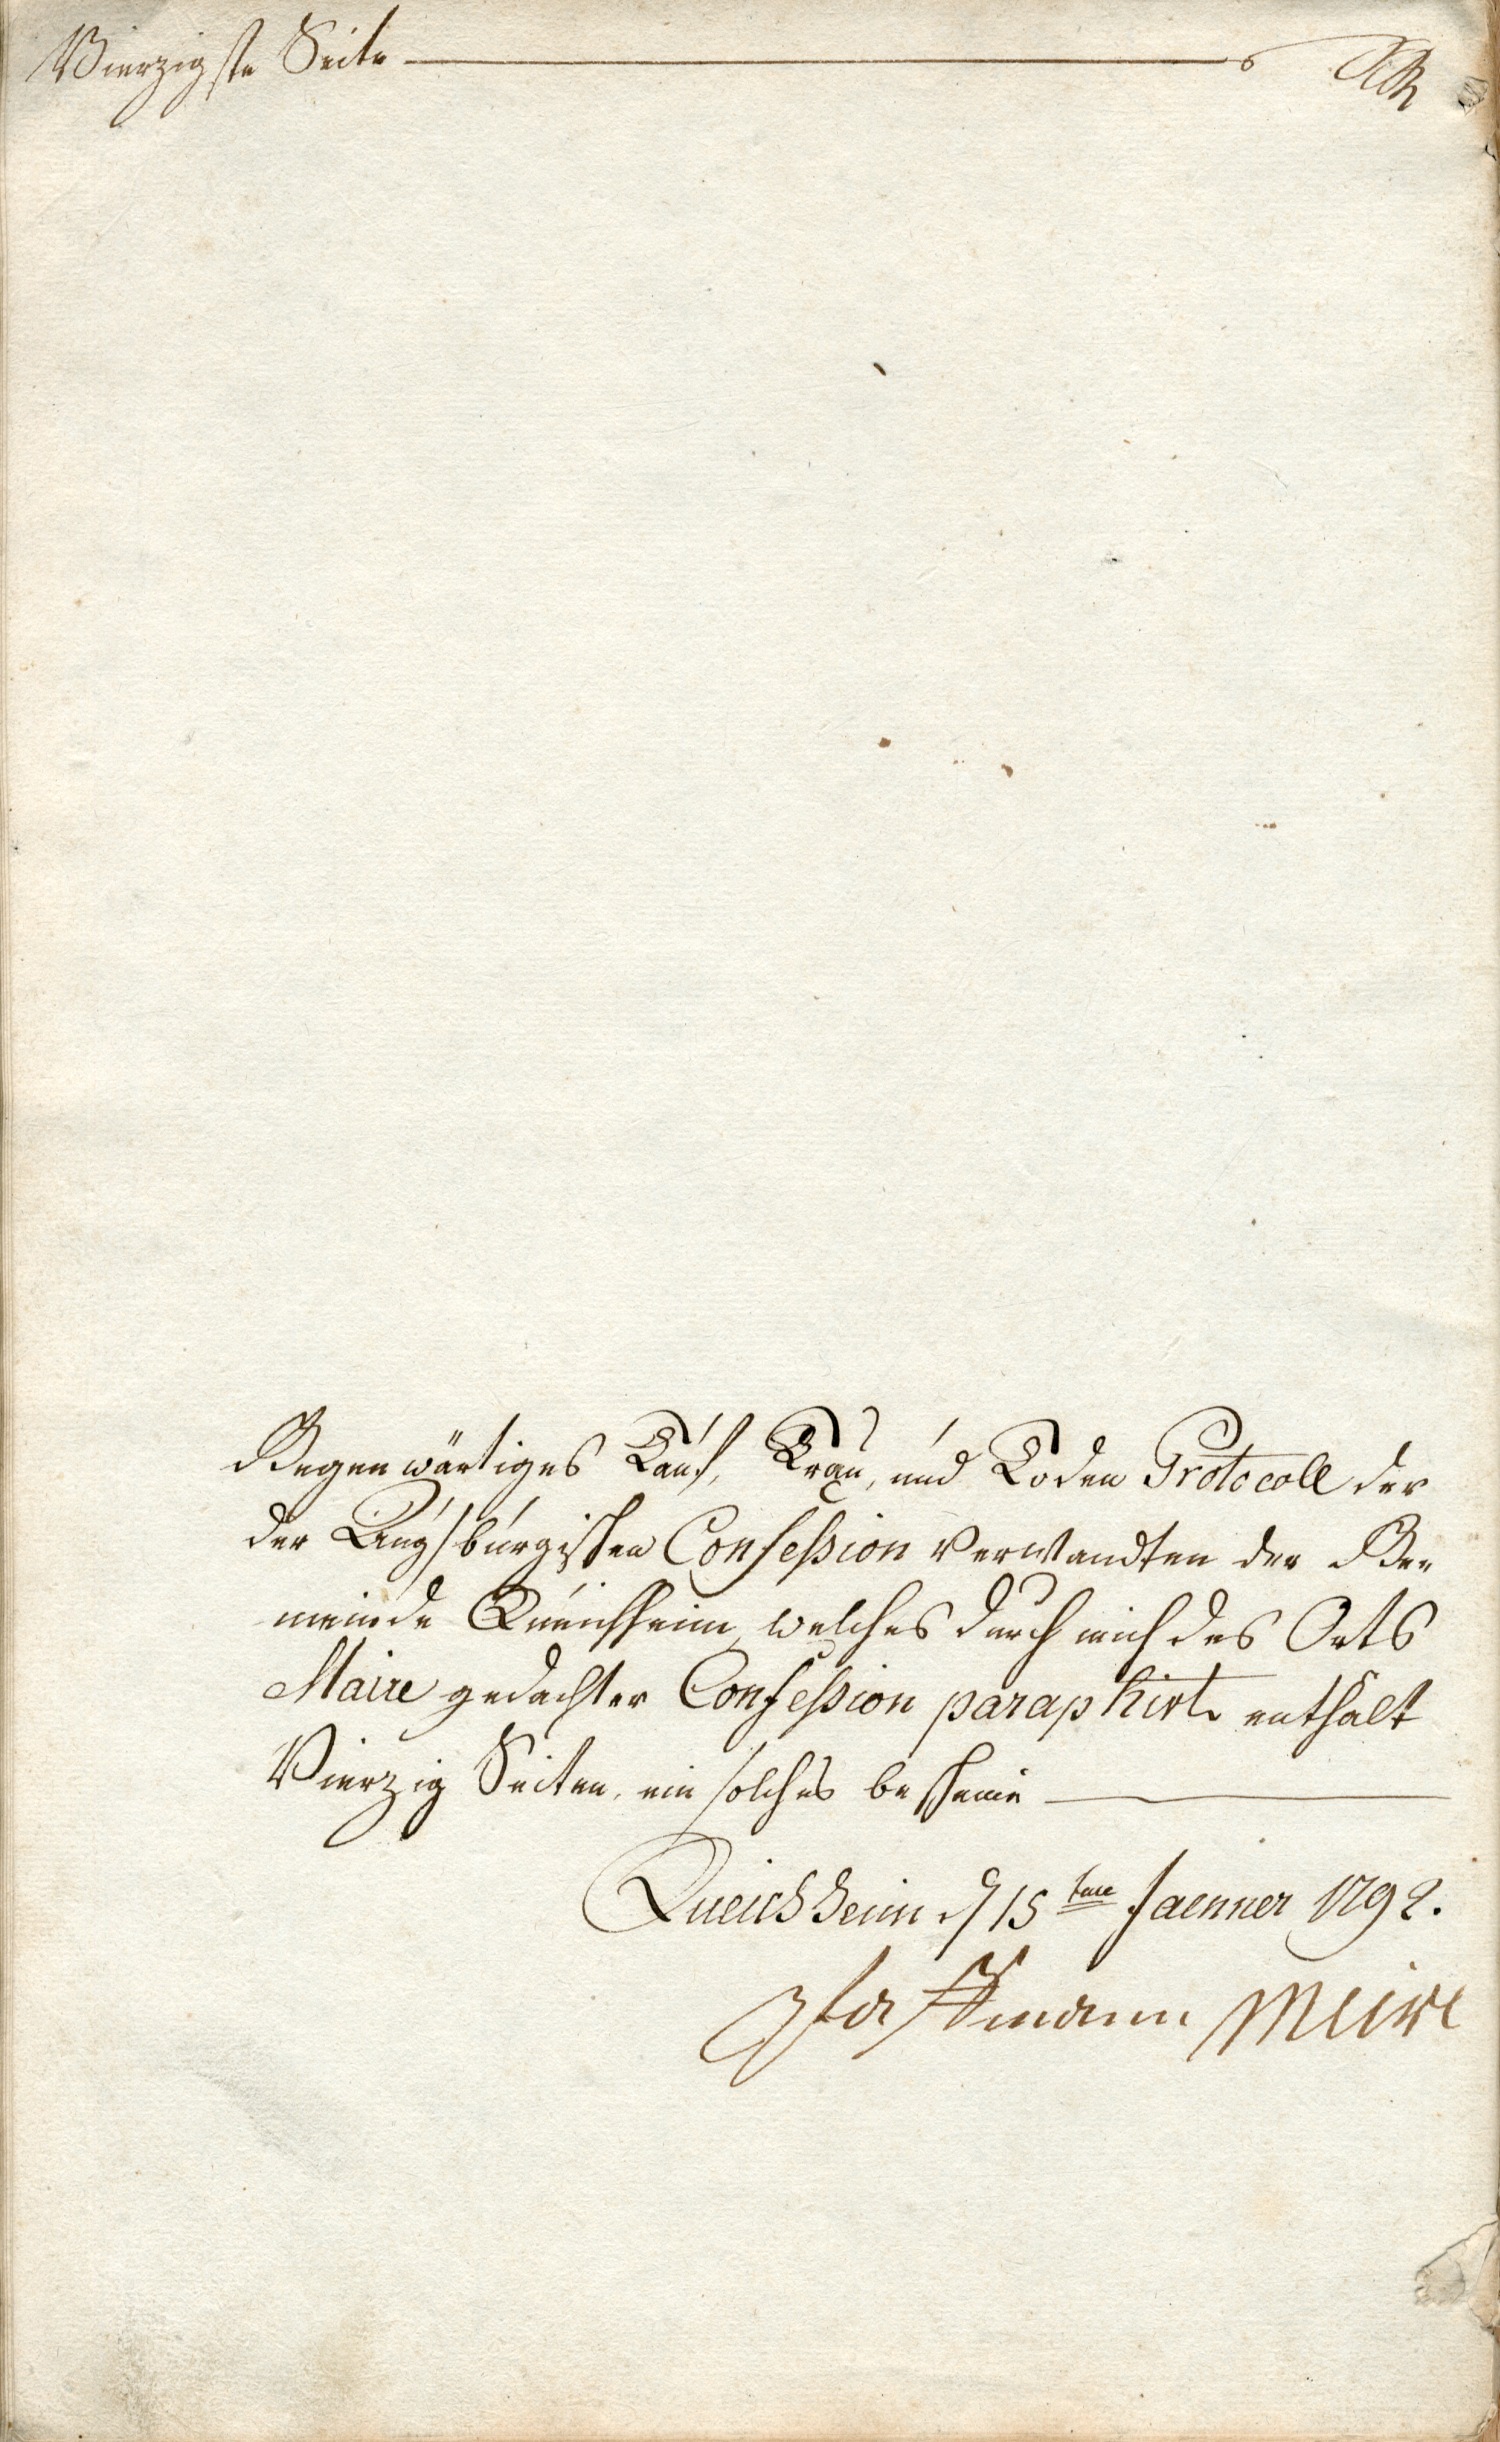 Vierzigste Seite
Gegenwärtiges Tauf, Trau, und Toden Protocoll der
der Augsburgischen Confeßion Verwandten der Ge-
meinde Queichheim, welches durch mich des Orts
Maire gedachter Confeßion paraphirt enthalt
Vierzig Seiten, ein solches bescheine
Queichheim d 15 ten Jaenner 1792.
Meire